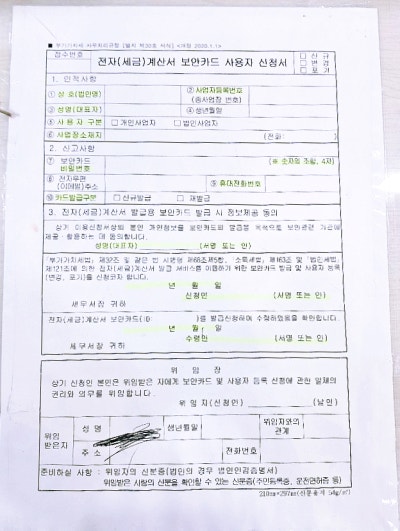 ■ 부가가치세 사무처리규정 [별지 제20호 서식] <개정 2020.1.1>
접수번호
전자(세금)계산서 보안카드 사용자 신청서
□ 신 규
□ 변 경
□ 포 기
1. 인적사항
① 상 호(법인명)
② 사업자등록번호
(종사업장 번호)
③ 성명(대표자)
④ 생년월일
⑤ 사용자 구분
□ 개인사업자
□ 법인사업자
⑥ 사업장소재지
(전화:
)
2. 신고사항
⑦ 보안카드
비밀번호
(※ 숫자의 조합, 4자)
⑧ 전자우편
(이메일)주소
⑨ 휴대전화번호
⑩ 카드발급구분
□ 신규발급
□ 재발급
3. 전자(세금)계산서 발급용 보안카드 발급 시 정보제공 동의
상기 이용신청서상의 본인 개인정보를 보안카드의 발급등을 목적으로 보안관련 기관에
제공·활용하는 데 동의합니다.
성명(대표자)
(서명 또는 인)
「부가가치세법」제32조 및 같은 법 시행령 제68조제5항, 「소득세법」제163조 및 「법인세법」
제121조에 의한 전자(세금)계산서 발급 서비스를 이용하기 위한 보안카드 발급 및 사용자 등록
(변경, 포기)를 신청코자 합니다.
년 월 일
신청인
(서명 또는 인)
세무서장 귀하
전자(세금)계산서 보안카드(ID:
)를 발급신청하여 수령하였음을 확인합니다.
년 월 일
수령인
(서명 또는 인)
세무서장 귀하
위 임 장
상기 신청인 본인은 위임받은 자에게 보안카드 및 사용자 등록 신청에 관한 일체의
권리와 의무를 위임합니다.
위 임 자(신청인)
(날인)
위임
받은자
성 명
생년월일
위임자와의
관계
주 소
전화번호
준비하실 사항 : 위임자의 신분증(법인의 경우 법인인감증명서)
위임받은 사람의 신분을 확인할 수 있는 신분증(주민등록증, 운전면허증 등)
210㎜×297㎜(신문용지 54g/㎡)